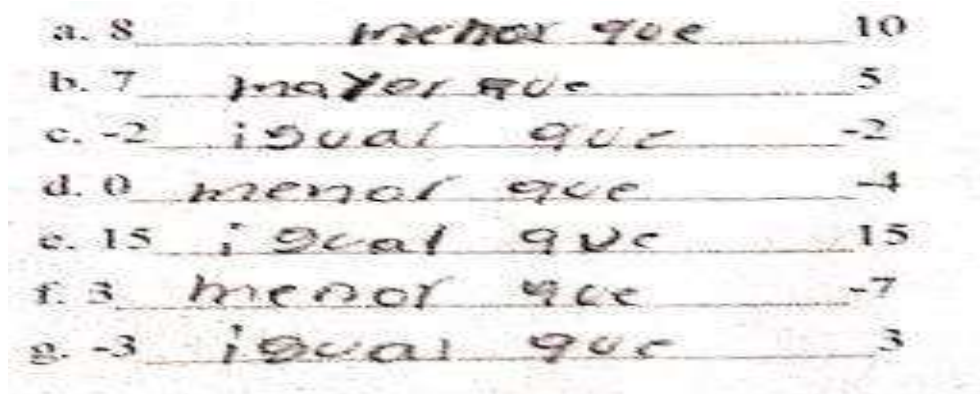 a. 8 menor que 10
b. 7 mayer que 5
c. -2 igual que -2
d. 0 menor que -4
e. 15 igual que 15
f. 3 menor que -7
g. -3 igual que 3